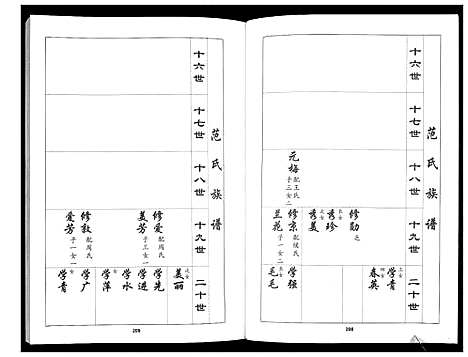 范氏族谱
十六世
十七世
十八世
十九世
二十世
元梅 配王氏 子三女二
修勋
长女 秀珍
秀美
修京 配侯氏 子一女二
兰花
三女 学青
春英
学强
毛毛
208
范氏族谱
十六世
十七世
十八世
十九世
二十世
修爱 配周氏 子三女一
美芳
修敦 配周氏 子一女一
爱芳
美丽
学先
学进
学水
女 学萍
学广
女 学青
209